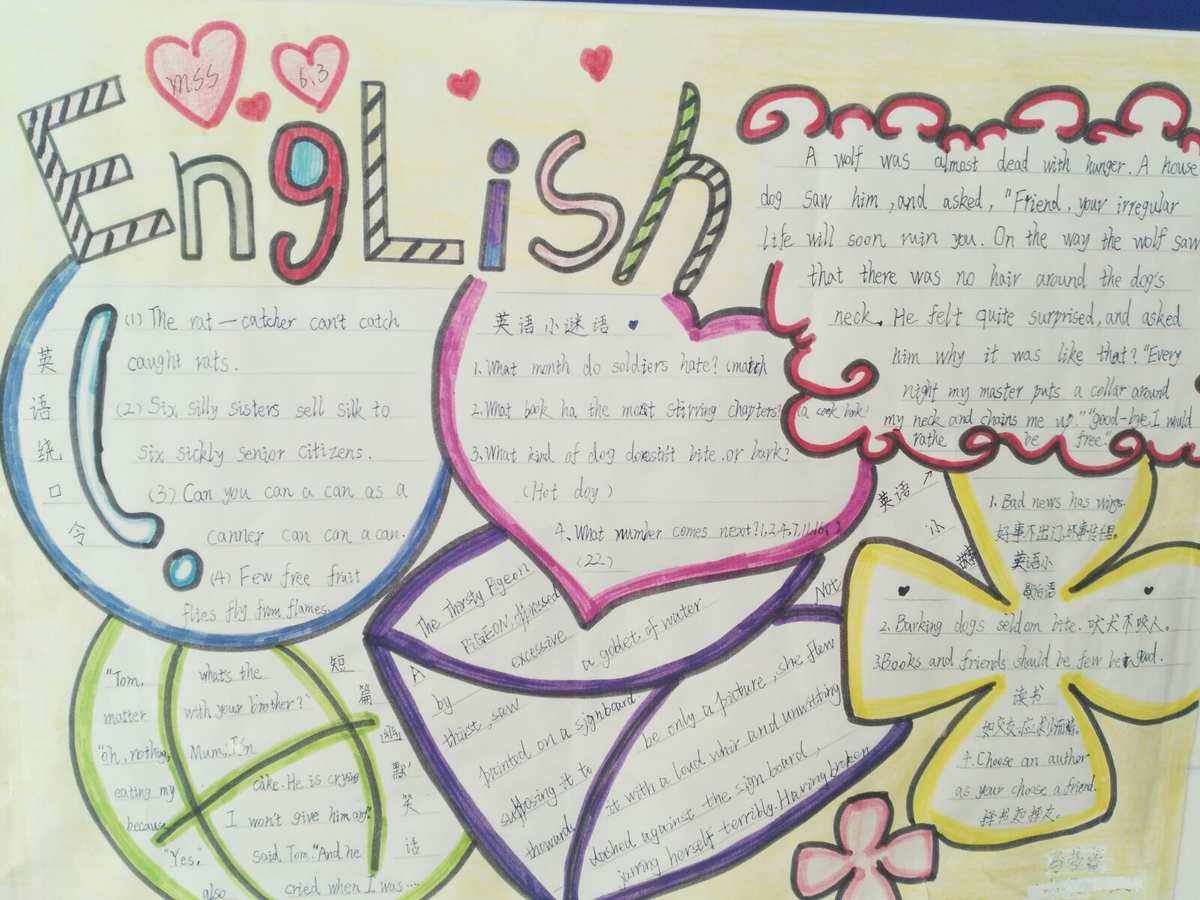 mss
6.3
EngLish
英语绕口令
(1) The rat-catcher can't catch
caught rats.
(2) Six silly sisters sell silk to
six sickly senior citizens.
(3) Can you can a can as a
canner can can a can.
(4) Few free fruit
flies fly from flames.
英语小谜语
1. What month do soldiers hate? (match
2. What book ha the most stirring chapters? (a cook book)
3. What kind of dog doesn't bite or bark?
(Hot dog)
4. What number comes next? 1,2,4,7,11,16,( )
(22)
A wolf was almost dead with hunger. A house
dog saw him, and asked, "Friend, your irregular
life will soon ruin you. On the way the wolf saw
that there was no hair around the dog's
neck. He felt quite surprised, and asked
him why it was like that? "Every
night my master puts a collar around
my neck and chains me up." "good-bye. I would
rathe be free."
英语小
1. Bad news has wings.
好事不出门,坏事传
英语小
2. Barking dogs seldom bite. 吠犬不咬人。
3. Books and friends should be few but good.
读书
如交友,应求少而精。
4. Choose an author
as your choose a friend.
择书如择友。
短篇幽默笑话
"Tom, whats the
matter with your brother?"
"oh, nothing, Mum. I'm
eating my cake. He is crying
because I won't give him any."
"Yes," said Tom. "And he
also cried when I was ....
The Thirsty Pigeon
A PIGEON, oppressed
by excessive
thirst, saw a goblet of water
painted on a signboard. Not
supposing it to be only a picture, she flew
towards it with a loud whir and unwitting
dashed against the sign board,
jarring herself terribly. Having broken